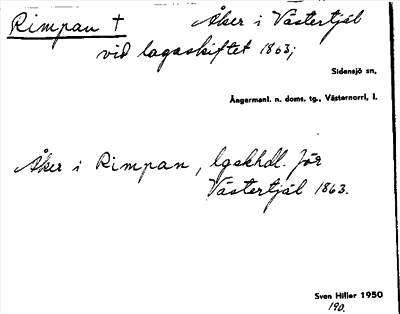 Rimpan † Åker i Västertjäl
vid lagaskiftet 1863;
Sidensjö sn,
Ångermanl. n. doms. tg., Västernorrl. l.
Åker i Rimpan, lgskhdl. för
Västertjäl 1863.
Sven Hiller 1950
190.